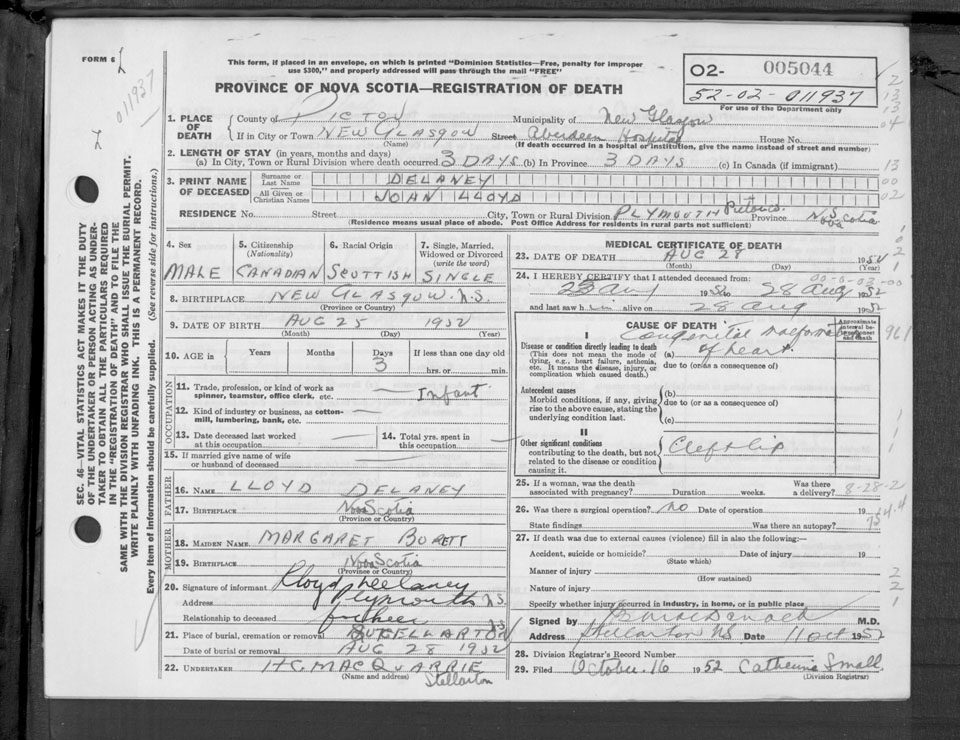 FORM 6
This form, if placed in an envelope, on which is printed "Dominion Statistics—Free, penalty for improper
use $300," and properly addressed will pass through the mail "FREE"
PROVINCE OF NOVA SCOTIA—REGISTRATION OF DEATH
O2- 005044
52-02-011937
For use of the Department only
011937
SEC. 46—VITAL STATISTICS ACT MAKES IT THE DUTY
OF THE UNDERTAKER OR PERSON ACTING AS UNDER-
TAKER TO OBTAIN ALL THE PARTICULARS REQUIRED
IN THE "REGISTRATION OF DEATH" AND TO FILE THE
SAME WITH THE DIVISION REGISTRAR WHO SHALL ISSUE THE BURIAL PERMIT.
WRITE PLAINLY WITH UNFADING INK. THIS IS A PERMANENT RECORD.
Every item of Information should be carefully supplied. (See reverse side for instructions.)
1. PLACE OF DEATH County of PICTOU Municipality of New Glasgow
If in City or Town NEW GLASGOW Street Aberdeen Hospital House No.
(Name) (If death occurred in a hospital or institution, give the name instead of street and number)
2. LENGTH OF STAY (in years, months and days)
(a) In City, Town or Rural Division where death occurred 3 DAYS (b) In Province 3 DAYS (c) In Canada (if immigrant)
3. PRINT NAME OF DECEASED Surname or Last Name DELANEY
All Given or Christian Names JOHN LLOYD
RESIDENCE No. Street City, Town or Rural Division PLYMOUTH Pictou Co. Province N.S. Nova Scotia
(Residence means usual place of abode. Post Office Address for residents in rural parts not sufficient)
4. Sex MALE
5. Citizenship (Nationality) CANADIAN
6. Racial Origin SCOTTISH
7. Single, Married, Widowed or Divorced (write the word) SINGLE
8. BIRTHPLACE NEW GLASGOW. N.S.
(Province or Country)
9. DATE OF BIRTH AUG 25 1952
(Month) (Day) (Year)
10. AGE in Years Months Days 3 If less than one day old hrs. or min.
OCCUPATION
11. Trade, profession, or kind of work as spinner, teamster, office clerk, etc. Infant
12. Kind of industry or business, as cotton-mill, lumbering, bank, etc.
13. Date deceased last worked at this occupation
14. Total yrs. spent in this occupation
15. If married give name of wife or husband of deceased
FATHER
16. NAME LLOYD DELANEY
17. BIRTHPLACE Nova Scotia
(Province or Country)
MOTHER
18. MAIDEN NAME MARGARET
19. BIRTHPLACE Nova Scotia
(Province or Country)
20. Signature of informant Lloyd Delaney
Address Plymouth N.S.
Relationship to deceased father
21. Place of burial, cremation or removal STELLARTON N.S.
Date of burial or removal AUG 28 1952
22. UNDERTAKER H.G. MACQUARRIE
(Name and address) Stellarton
MEDICAL CERTIFICATE OF DEATH
23. DATE OF DEATH AUG 28 1952
(Month) (Day) (Year)
24. I HEREBY CERTIFY that I attended deceased from:
23 aug 1952 to 28 aug 1952
and last saw h alive on 28 aug 1952
CAUSE OF DEATH
Approximate interval between onset and death
I
Disease or condition directly leading to death (a) Congenital malformation of heart
(This does not mean the mode of dying, e.g., heart failure, asthma, etc. It means the disease, injury, or complication which caused death.)
due to (or as a consequence of)
Antecedent causes
Morbid conditions, if any, giving rise to the above cause, stating the underlying condition last.
(b)
due to (or as a consequence of)
(c)
II
Other significant conditions contributing to the death, but not related to the disease or condition causing it.
Cleft lip
25. If a woman, was the death associated with pregnancy? Duration weeks. Was there a delivery? 8-28-2
26. Was there a surgical operation? no Date of operation 19
State findings Was there an autopsy?
27. If death was due to external causes (violence) fill in also the following:—
Accident, suicide or homicide? Date of injury 19
(State which)
Manner of injury
(How sustained)
Nature of injury
Specify whether injury occurred in industry, in home, or in public place
Signed by M.D.
Address Stellarton NS Date 11 Oct 1952
28. Division Registrar's Record Number
29. Filed October 16 1952 Catherine Small
(Division Registrar)
961